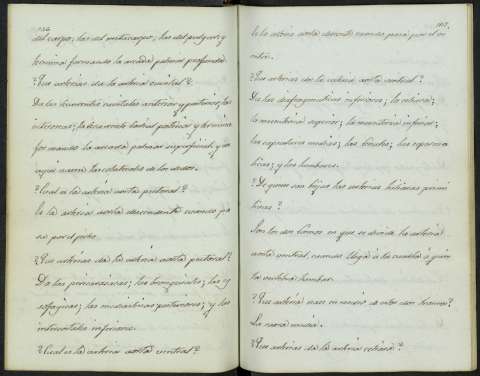 136
del carpo; las del metacarpo; las del pulgar; y
termina formando la arcada palmar profunda.
? Que arterias da la arteria cubital?
Da las recurrentes cubitales anterior y posterior; las
interoseas; la transversal palmar y termina
formando la arcada palmar superficial, y de
aqui nacen las colaterales de los dedos.
? Cual es la arteria aorta pectoral?
Es la arteria aorta descendente cuando pa
sa por el pecho.
? Que arterias da la arteria aorta pectoral?
Da las pericardinas; las bronquiales; las es
ofagicas; las mediastinas posteriores; y las
intercostales inferiores.
? Cual es la arteria aorta ventral?
137.
Es la arteria aorta descendente cuando pasa por el vi
entre.
? Que arterias da la arteria aorta ventral?
Da las diafragmaticas inferiores; la celiaca;
la mesenterica superior; la mesenterica inferior;
las capsulares medias; las renales; las esperma
ticas; y las lumbares.
? De quien son hijas las arterias iliacas primi
tivas?
Son los dos ramos en que se divide la arteria
aorta ventral, cuando llega á la cuarta ó quin
ta vertebra lumbar.
? Que arteria nace en medio de estos dos ramos?
La sacra media.
? Que arterias da la arteria celiaca?